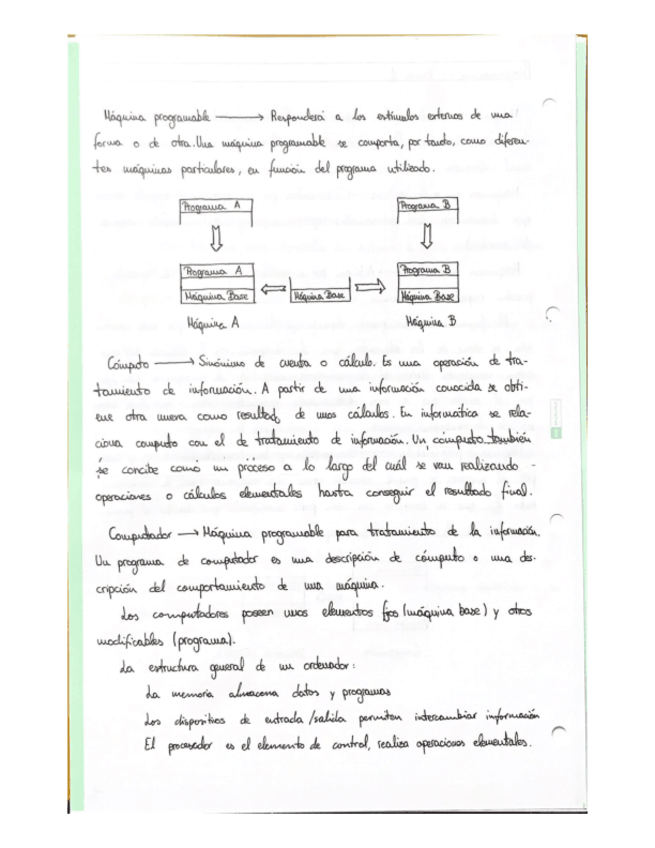 Máquina programable ⟶ Responderá a los estímulos externos de una
forma o de otra. Una máquina programable se comporta, por tanto, como diferen-
tes máquinas particulares, en función del programa utilizado.
Programa A Programa B
Programa A Programa B
Máquina Base Máquina Base Máquina Base
Máquina A Máquina B
Cómputo ⟶ Sinónimo de cuenta o cálculo. Es una operación de tra-
tamiento de información. A partir de una información conocida se obti-
ene otra nueva como resultado de unos cálculos. En informática se rela-
ciona computo con el de tratamiento de información. Un cómputo también
se concibe como un proceso a lo largo del cuál se van realizando
operaciones o cálculos elementales hasta conseguir el resultado final.
Computador ⟶ Máquina programable para tratamiento de la información.
Un programa de computador es una descripción de cómputo o una des-
cripción del comportamiento de una máquina.
Los computadores poseen unos elementos fijos (máquina base) y otros
modificables (programa).
La estructura general de un ordenador:
La memoria almacena datos y programas
Los dispositivos de entrada/salida permiten intercambiar información
El procesador es el elemento de control, realiza operaciones elementales.